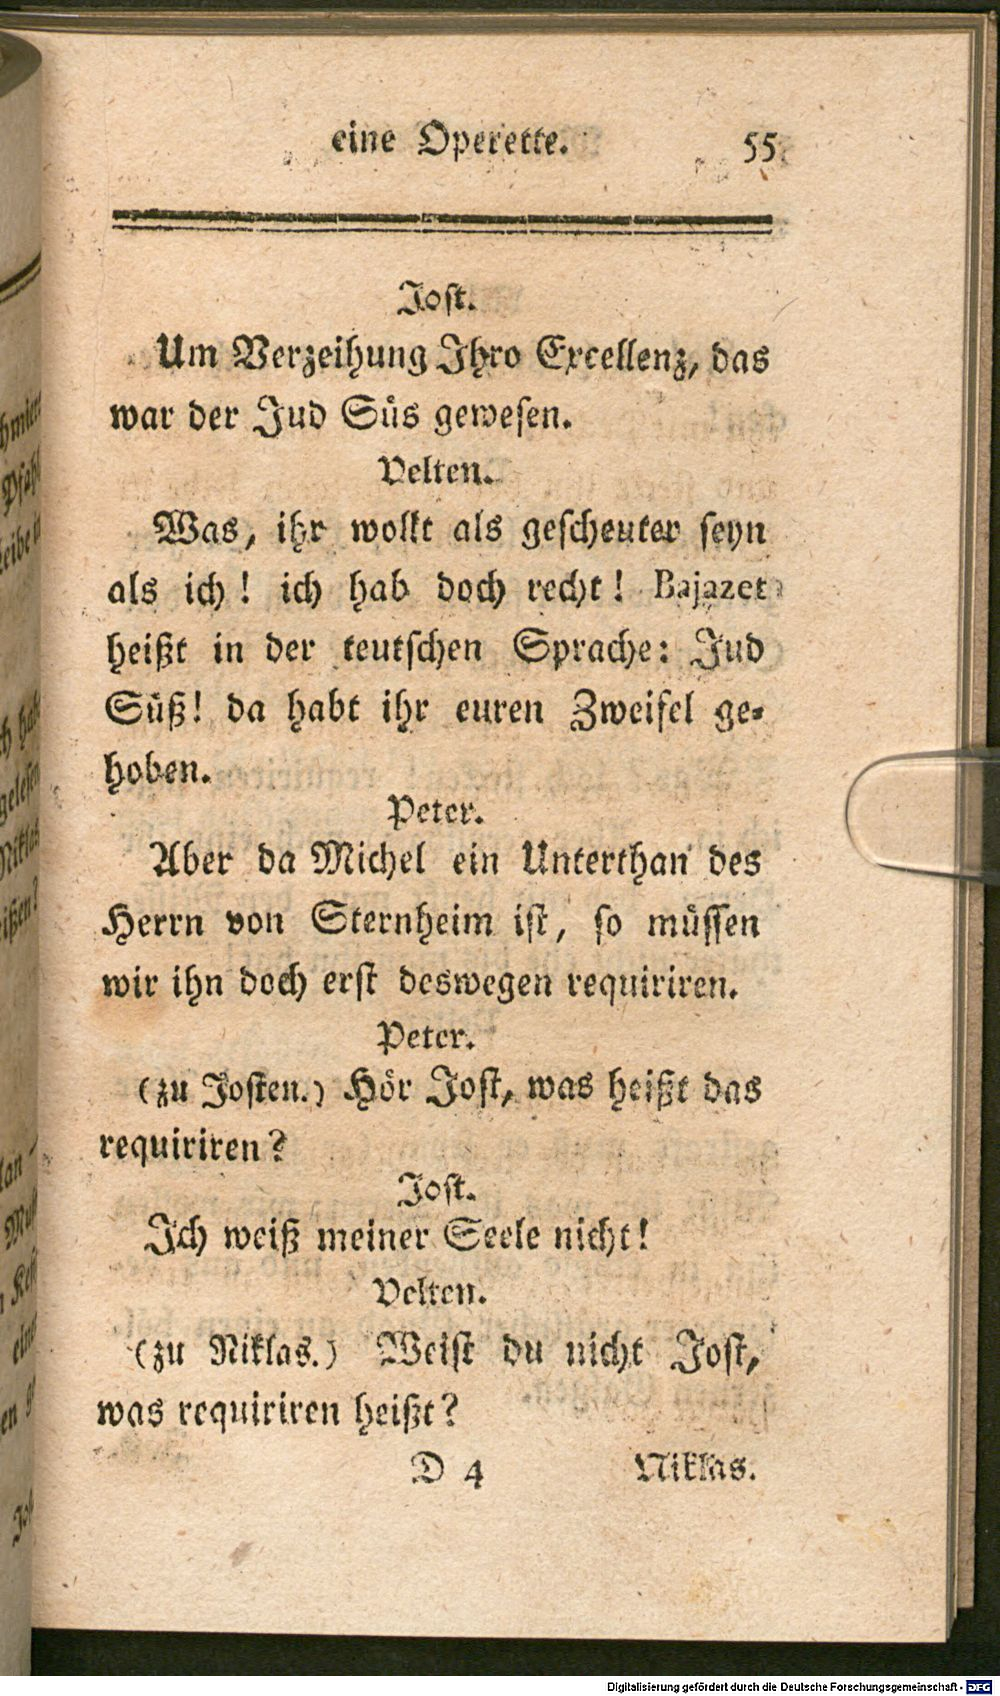 eine Operette. 55
Jost.
Um Verzeihung Ihro Excellenz, das
war der Jud Süs gewesen.
Velten.
Was, ihr wollt als gescheuter seyn
als ich! ich hab doch recht! Bajazet
heißt in der teutschen Sprache: Jud
Süß! da habt ihr euren Zweifel ge-
hoben.
Peter.
Aber da Michel ein Unterthan des
Herrn von Sternheim ist, so müssen
wir ihn doch erst deswegen requiriren.
Peter.
(zu Josten.) Hör Jost, was heißt das
requiriren?
Jost.
Ich weiß meiner Seele nicht!
Velten.
(zu Niklas.) Weist du nicht Jost,
was requiriren heißt?
D 4 Niklas.
Digitalisierung gefördert durch die Deutsche Forschungsgemeinschaft - DFG